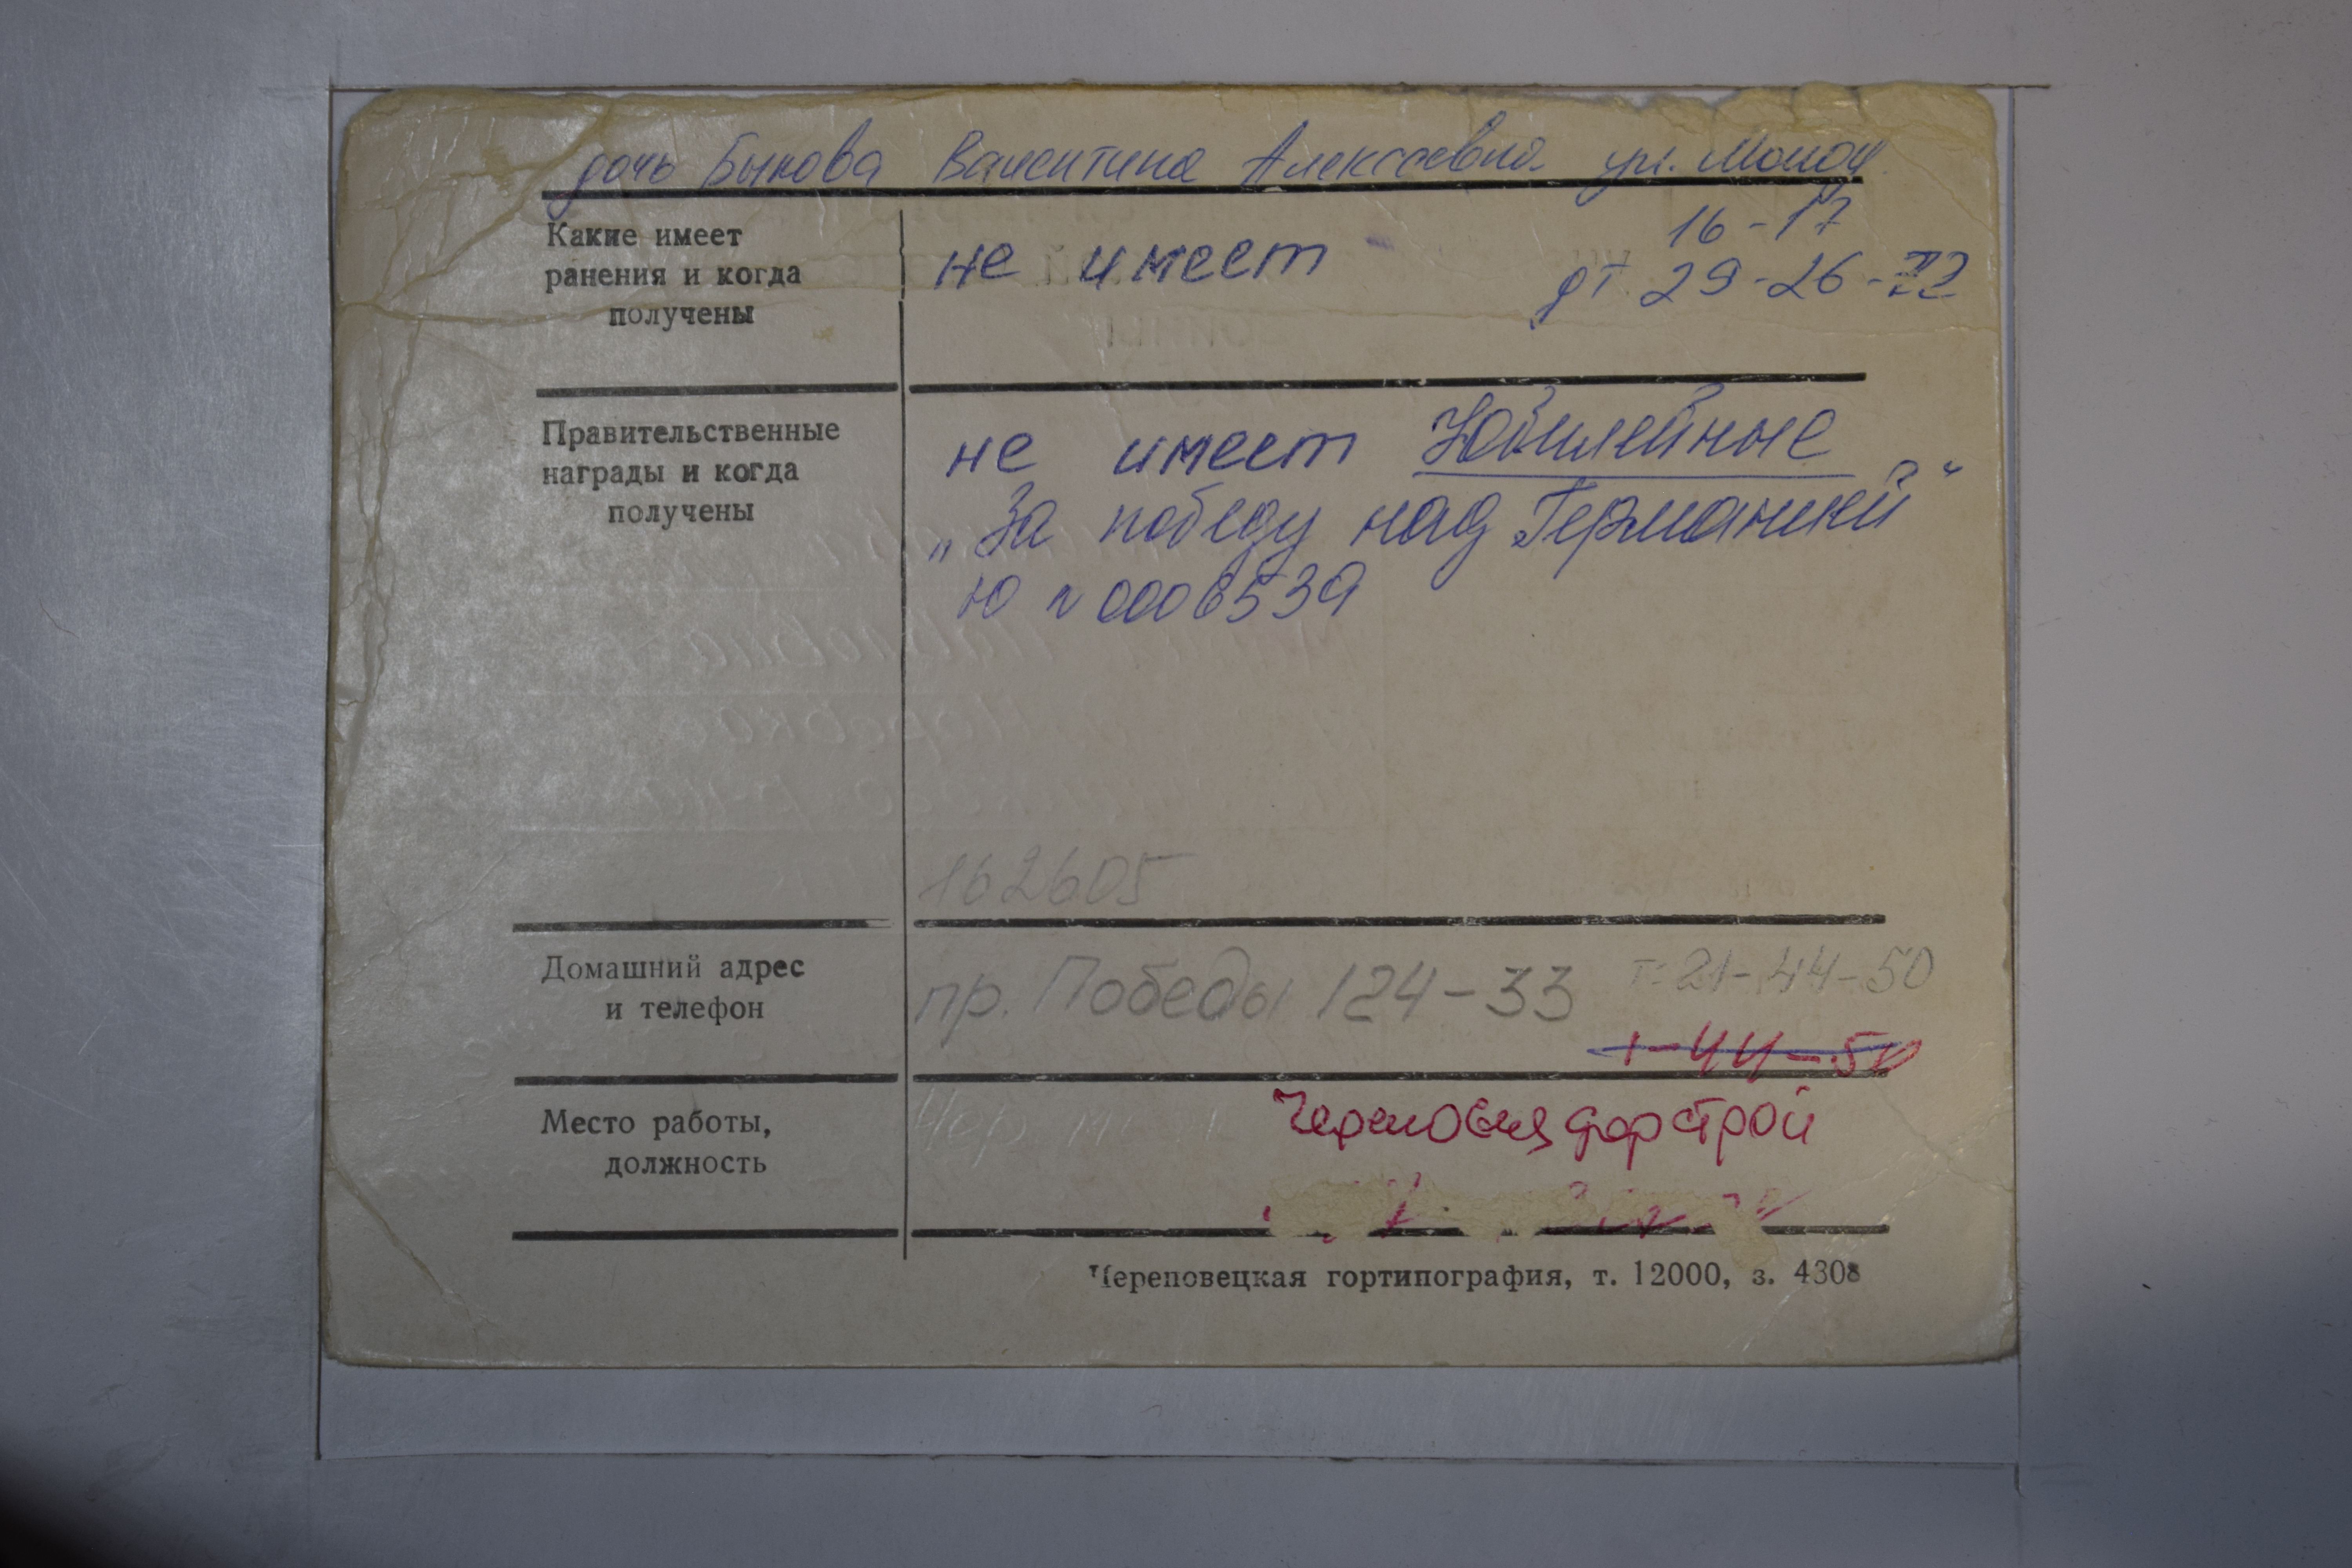 дочь Быкова Валентина Алексеевна ул. Молод.
16-17
Какие имеет
ранения и когда
получены
не имеет
дт 29-26-72
Правительственные
награды и когда
получены
не имеет Юбилейные
„За победу над Германией“
Ю № 0006539
162605
Домашний адрес
и телефон
пр. Победы 124-33 т. 21-44-50
1-44-50
Место работы,
должность
Чер.
Череповецдорстрой
Череповецкая гортипография, т. 12000, з. 4308